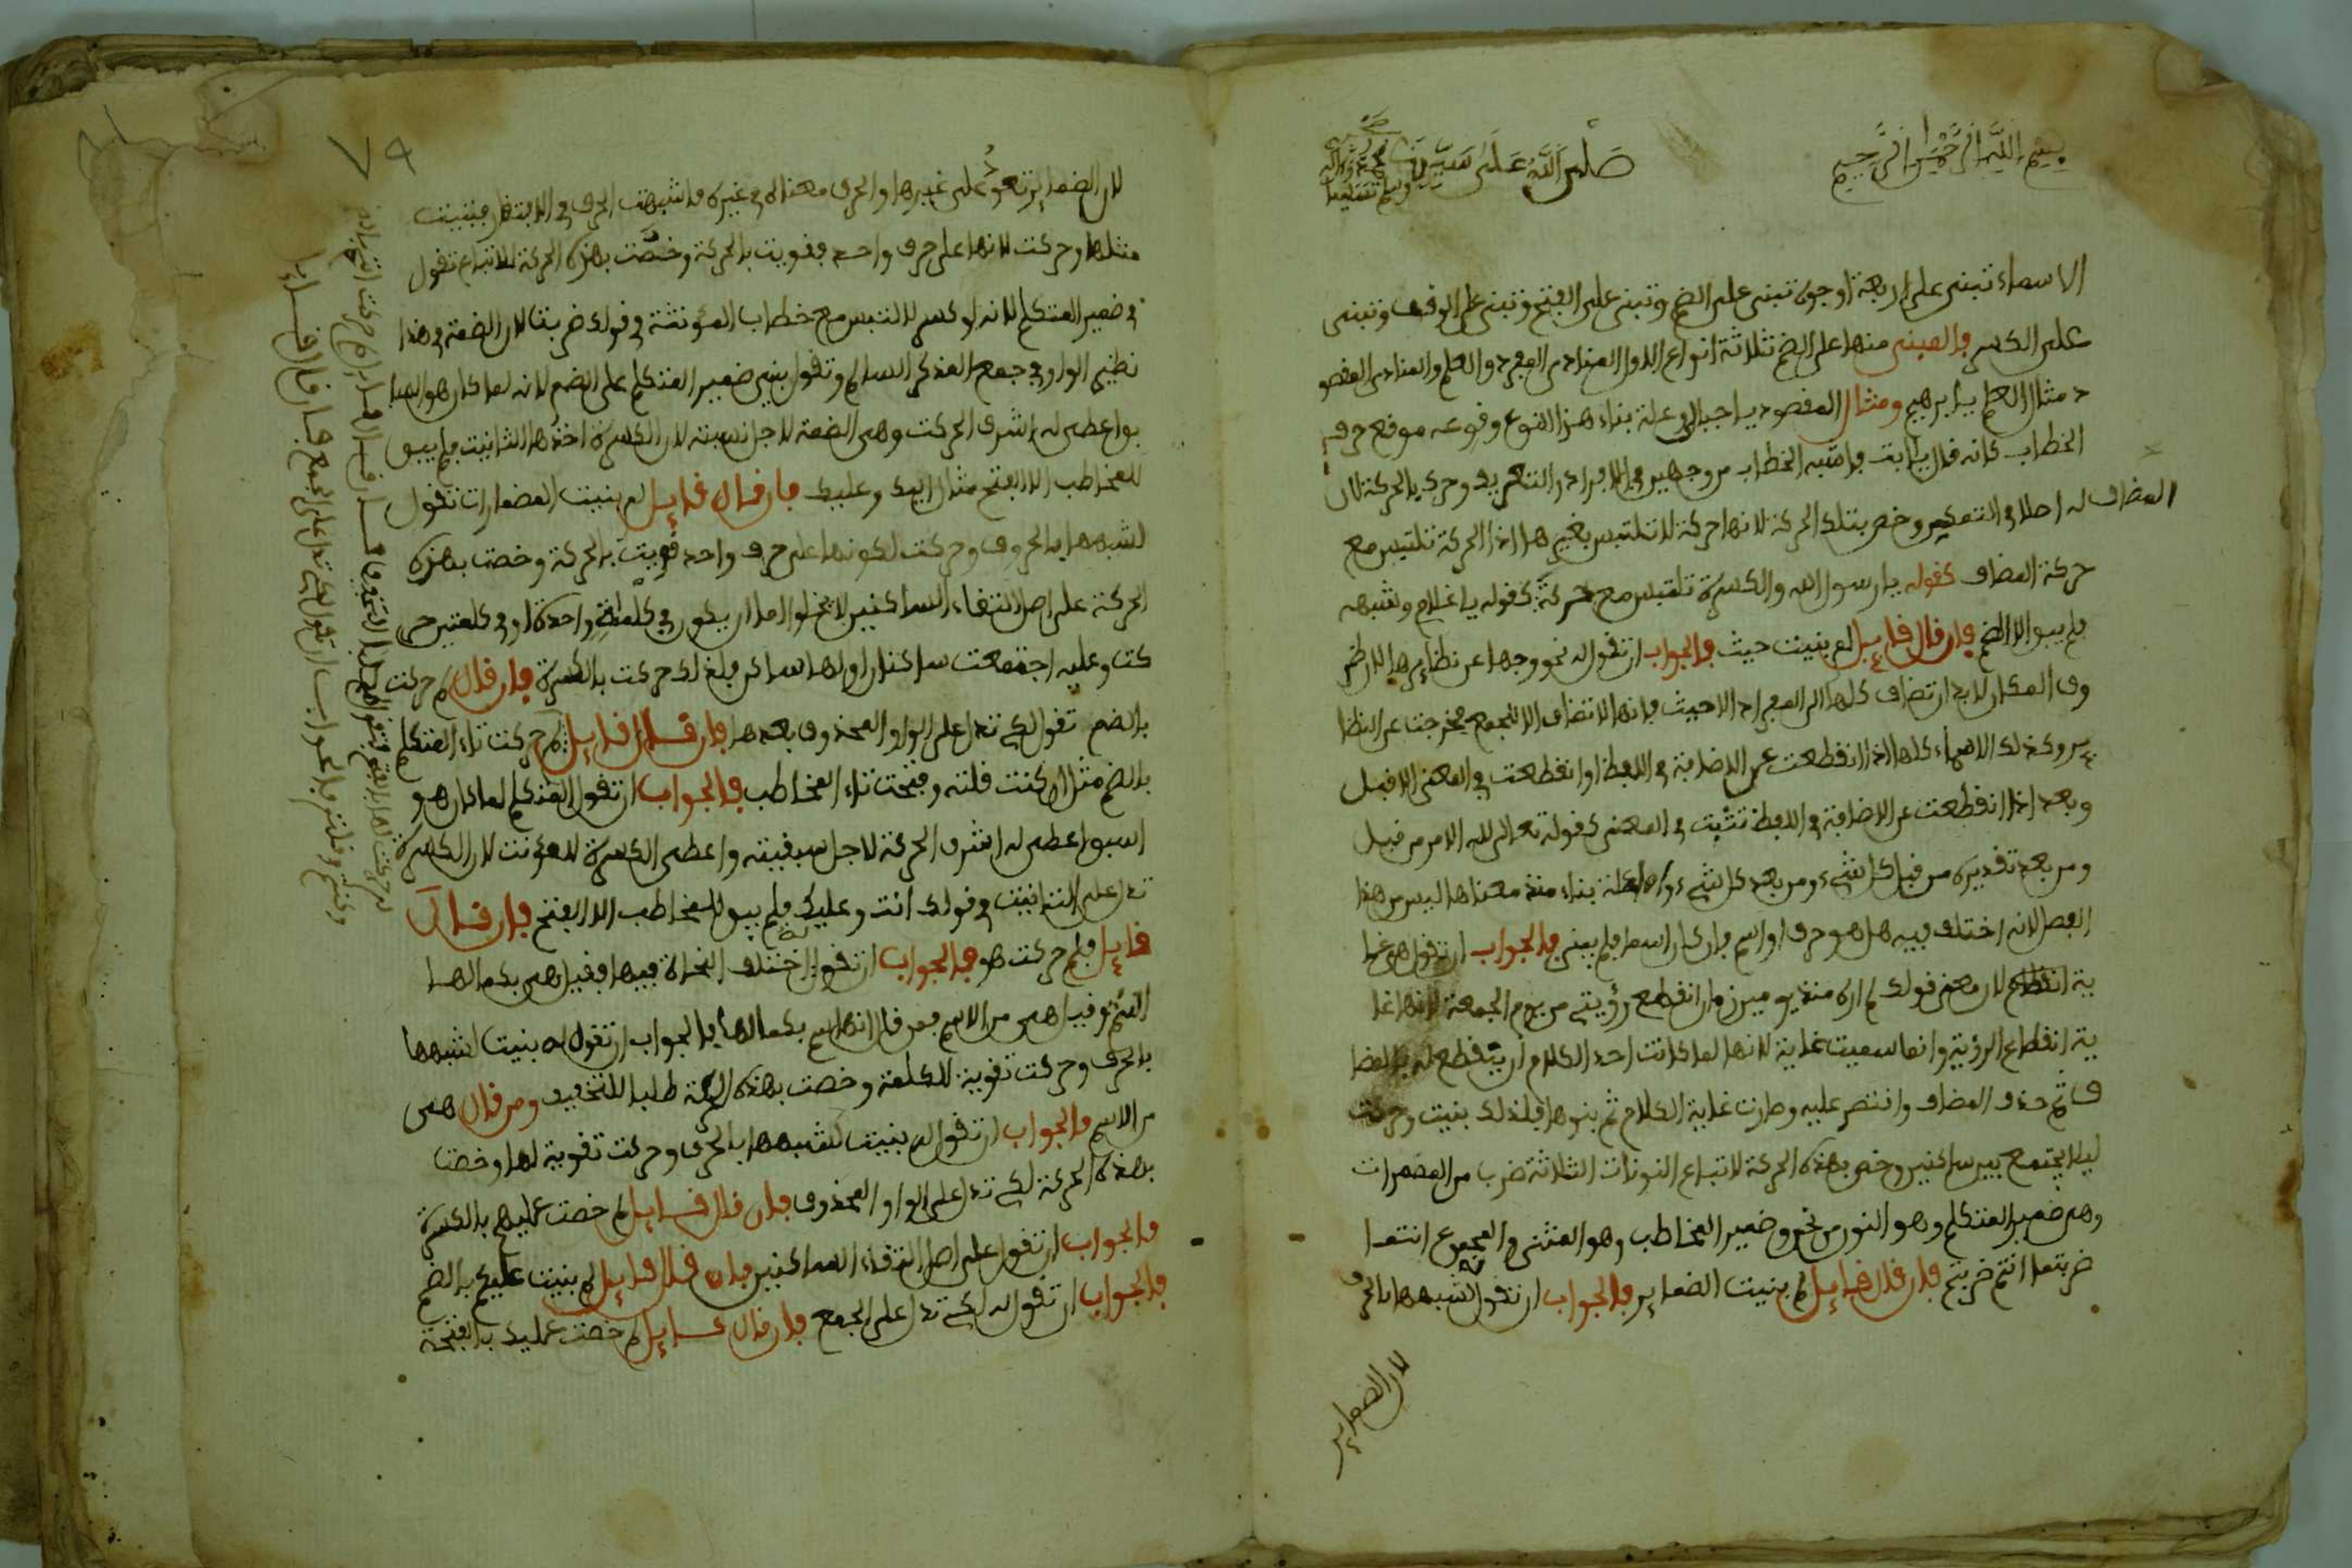 بسم الله الرحمن الرحيم
صلى الله على سيدنا محمد وآله
وسلم تسليما
الاسماء تبنى على اربعة اوجه تبنى على الضم وتبنى على الفتح وتبنى على الوقف وتبنى
على الكسر فالمبني منها على الضم ثلاثة انواع الاول المنادى المفرد والعلم والمنادى المقصو
د مثال العلم يا ابرهيم ومثال المقصود يا جبال وعلة بناء هذا النوع وقوعه موقع حرف
الخطاب كانه قال يا انت فاشبه الخطاب من وجهين في الافراد والتعريف وحرك بالحركة لان
المضاف له اصلا في التمكين وخص بتلك الحركة لانها حركة لا تلتبس بغيرها اذا الحركة تلتبس مع
حركة المضاف كقوله يا رسول الله والكسرة تلتبس مع حركة كقوله يا غلام وشبهه
فلم يبق الا الضم فان قال قايل لم بنيت حيث فالجواب ان تقول له نحو وجها عن نظايرها لان ظر
وف المكان لا بد ان تضاف كلها الى المفراد الا حيث فانها لا تضاف الا للجمع فخرجت عن النظا
ير وكذلك الاسماء كلها اذا انقطعت عن الاضافة في اللفظ او انقطعت في المعنى الا قبل
وبعد اذا انقطعت عن الاضافة في اللفظ تثبت في المعنى كقوله تعالى لله الامر من قبل
ومن بعد تقديره من قبل كل شيء ومن بعد كل شيء واما علة بناء منذ معناها ليس من هذا
الفصل لانه اختلف فيه هل هو حرف او اسم فان كان اسما فلم بني فالجواب ان تقول هي غا
ية انقطاع لان معنى قولك لم اره منذ يومين زمان انقطع رؤيتي من يوم الجمعة لانها غا
ية انقطاع الرؤية وانما سميت غاية لانها لما كانت احد الكلام ان ينقطع له بالمضا
ف ثم حذف المضاف واقتصر عليه وصارت غاية الكلام ثم بنوها فلذلك بنيت وحركت
ليلا يجتمع بين ساكنين وخص بهذه الحركة لاتباع النونات الثلاثة ضرب من المضمرات
وهي ضمير المتكلم وهو النون من نحن وضمير المخاطب وهو المثنى والمجموع انتما
ضربتما انتم ضربتم فان قال قايل لم بنيت الضماير فالجواب ان تقول لشبهها بالحرف
لان الضماير
٧٩
لان الضماير تعود على غيرها والحرف معناه في غيره فاشبهت الحرف في الافتقار فبنيت
مثلها وحركت لانها على حرف واحد فقويت بالحركة وخصت بهذه الحركة للاتباع تقول
في ضمير المتكلم لانه لو كسر لالتبس مع خطاب المؤنثة في قولك ضربت لان الضمة في هذا
نظير الواو في جمع المذكر السالم وتقول بني ضمير المتكلم على الضم لانه لما كان هو السا
بق اعطى له اشرف الحركت وهي الضمة لاجل نسبته لان الكسرة اخذها التانيث فلم يبق
للمخاطب الا الفتح مثل اليك وعليك فان قال قايل لم بنيت المضمارات تقول
لشبهها بالحروف وحركت لكونها على حرف واحد قويت بالحركة وخصت بهذه
الحركة على اصل التقاء الساكنين لا تخلو اما ان يكون في كلمة واحدة او في كلمتين حر
كت وعليه اجتمعت ساكنان اولها ساكن فلذلك حركت بالكسرة فان قال لم حركت
بالضم تقول لكي تدل على الواو المحذوف بعدها فان قال قايل لم حركت تاء المتكلم
بالضم مثل ان كنت قلته وفتحت تاء المخاطب فالجواب ان تقول المتكلم لما كان هو
اسبق اعطى له اشرف الحركة لاجل سبقيته واعطى الكسرة للمؤنث لان الكسرة
تدل على التانيث في قولك انت وعليك فلم يبق للمخاطب الا الفتح فان قال
قايل فلم حركت هو فالجواب ان تقول اختلف النحاة فيها فقيل هي بكمالها
اسم وقيل هي من الاسم فمن قال انها اسم بكمالها فالجواب ان تقول له بنيت لشبهها
بالحرف وحركت تقوية للكلمة وخصت بهذه الحركة طلبا للتخفيف ومن قال هي
من الاسم فالجواب ان تقول له بنيت لشبهها بالحرف وحركت تقوية لها وخصت
بهذه الحركة لكي تدل على الواو المحذوف فان قال قايل لم خصت عليهم بالكسرة
فالجواب ان تقول على اصل التقاء الساكنين فان قال قايل لم بنيت عليكم بالضم
فالجواب ان تقول له لكي تدل على الجمع فان قال قايل لم خصت عليك بالفتحة